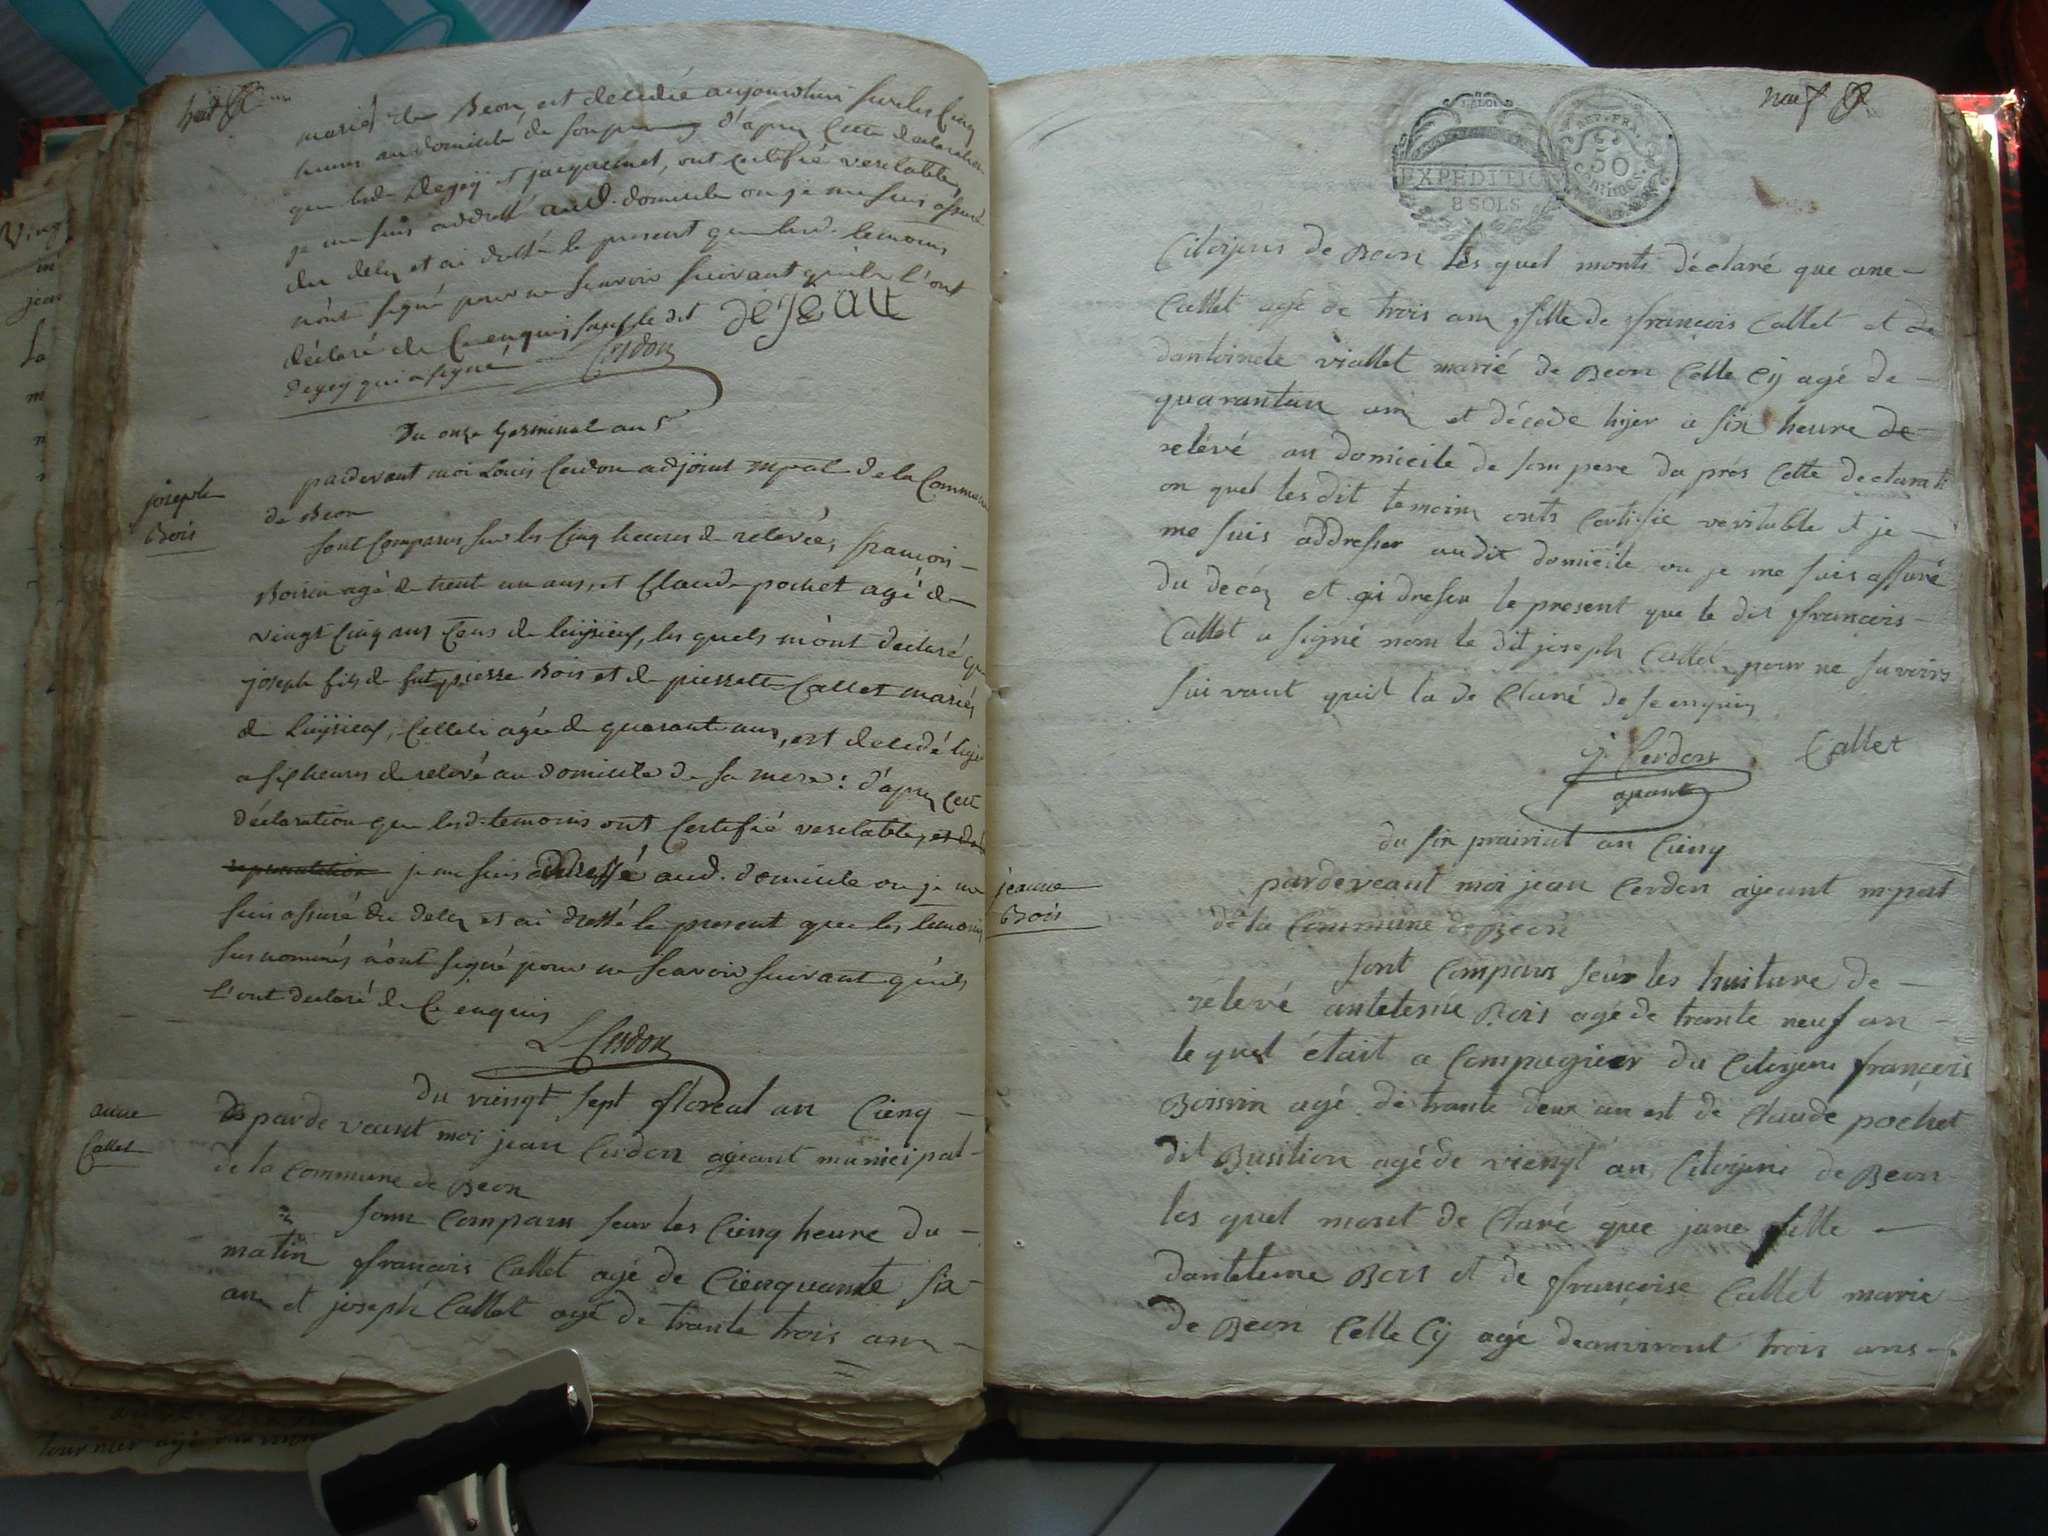 huit
mariés de Beon, est decedée aujourdhui sur les Cinq
heures au domicile de son pere d'apres Cette declaration
que lesd. Degeÿ et jacquemet, ont Certifié veritable,
je me suis addressé aud. domicile ou je me suis assuré
du deces et ai dressé le present que lesd. temoins
n'ont signé pour ne scavoir suivant qu'ils l'ont
déclaré de Ce enquis, sauf le dit DEJEAIT
Degeÿ qui a signé Cerdon
Du onze Germinal an 5
joseph
Bois
pardevant moi Louis Cerdon adjoint mpal de la Commune
de Beon
sont Comparus sur les Cinq heures de relevée, françois
Boisin agé de trent un ans, et Claude pochet agé de
vingt Cinq ans tous de luijsieux, les quels m'ont déclaré que
joseph fils de fut pierre Bois et de pierrette Callet mariés
de Luijsieux, Celleci agée de quarante ans, est decedé hijer
a six heures de relevé au domicile de sa mere: d'apres Cette
déclaration que lesd. temoins ont Certifié veritable, et de
representation je me suis addressé aud. domicile ou je me
suis assuré du deces et ai dressé le present que les temoins
sus nommés n'ont signé pour ne scavoir suivant qu'ils
l'ont declaré de Ce enquis
L Cerdon
du viengt sept floreal an Cienq
anne
Callet
parde veant moi jean Cerdon ageant municipal
de la Commune de Beon
sonn Comparu seur les Cienq heure du
matin francois Callet agé de Cienquante six
an et joseph Callet agé de trante trois ans
neuf
EXPÉDITION
8 SOLS
REP. FRA.
50
Centimes
Citoijens de Beon les quel monts déclaré que ane
Callet agé de trois ans fille de françois Callet et de
dantoinete viallet marié de Beon Celle Cij agé de
quarantun ans et décéde hijer a six heure de
relévé au domicile de son pere da prés Cette declarati
on quel les dit temoins onts Certifie veritable et je
me suis addresser audit domicile ou je me suis assuré
du decés et ai dresser le present que le dit francois
Callet a signé nom le dit joseph Callet pour ne savoirs
sui vant quil la de Claré de se enquis
j. Cerdon Callet
ajeant
du six prairial an Cienq
jeanne
Bois
pardeveant moi jean Cerdon ajeant mpal
de la Commune de Beon
sont Comparus seur les huiture de
rélevé antelesme Bois agé de trante neuf an
lequel était a Compagnier du Citoijens françois
Boissin agé de trante deux an est de Claude pochet
dit Basilion agé de viengt an Citoijens de Beon
les quel mont de Claré que jane fille
dantelme Bois et de françoise Callet marie
de Beon Celle Cij agé deanviront trois ans